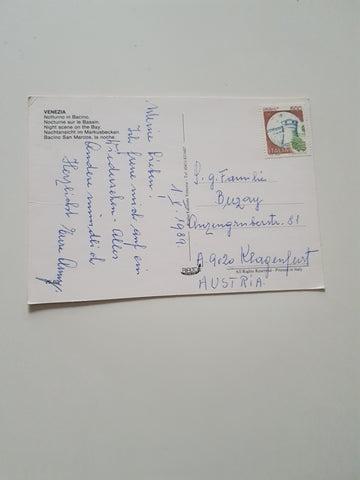 VENEZIA
Notturno in Bacino.
Nocturne sur le Bassin.
Night scene on the Bay.
Nachtansicht im Markusbecken.
Bacino San Marcos, la noche.
Meine Lieben!
1.V.1989
Ich freue mich auf ein
Wiedersehen. Alles
Andere mündlich
Herzlichst Eure
600
ITALIA
S.g. Familie
Buzay
Anzengruberstr. 81
A 9020 Klagenfurt
AUSTRIA
All Rights Reserved - Printed in Italy